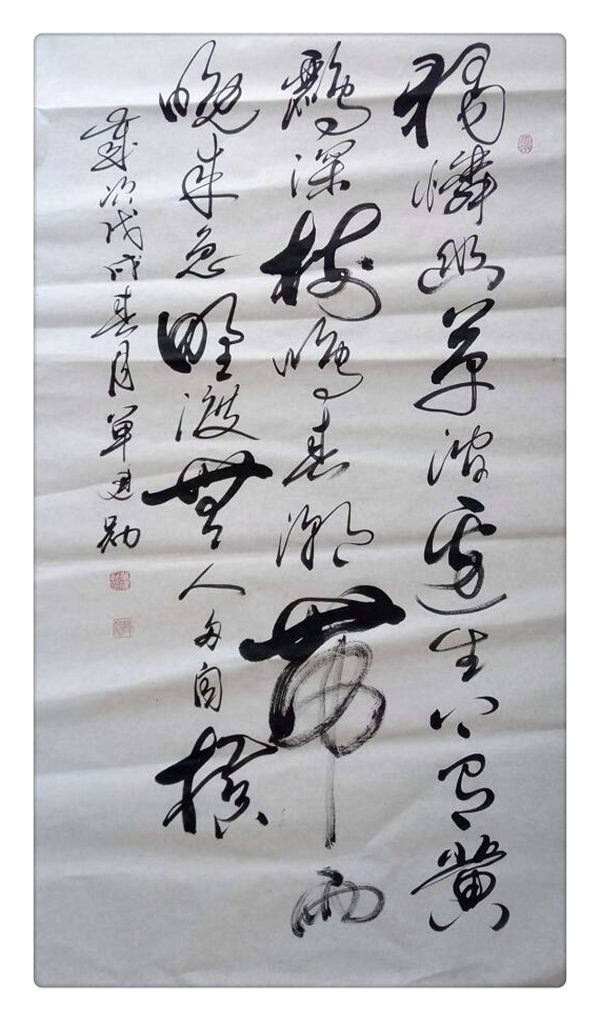 獨憐幽草澗邊生上有黄
鸝深樹鳴春潮帶雨
晚来急野渡無人舟自横
歲次戊戌春月单建勋